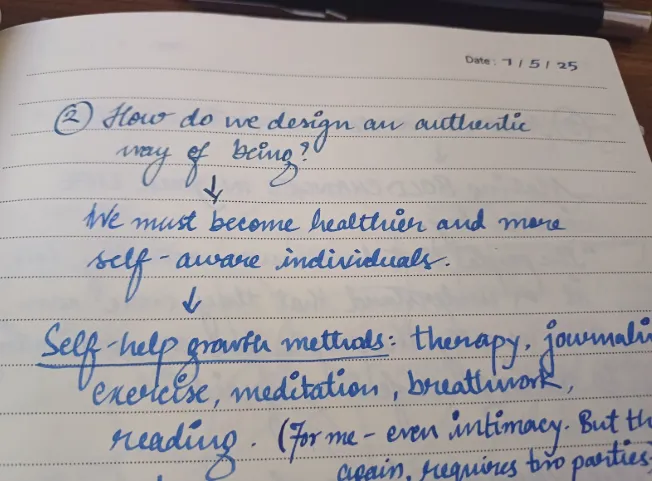 Date: 7/5/25
② How do we design an authentic
way of being?
↓
We must become healthier and more
self-aware individuals.
↓
Self-help growth methods: therapy, journali
exercise, meditation, breathwork,
reading. (For me - even intimacy. But th
again, requires two parties